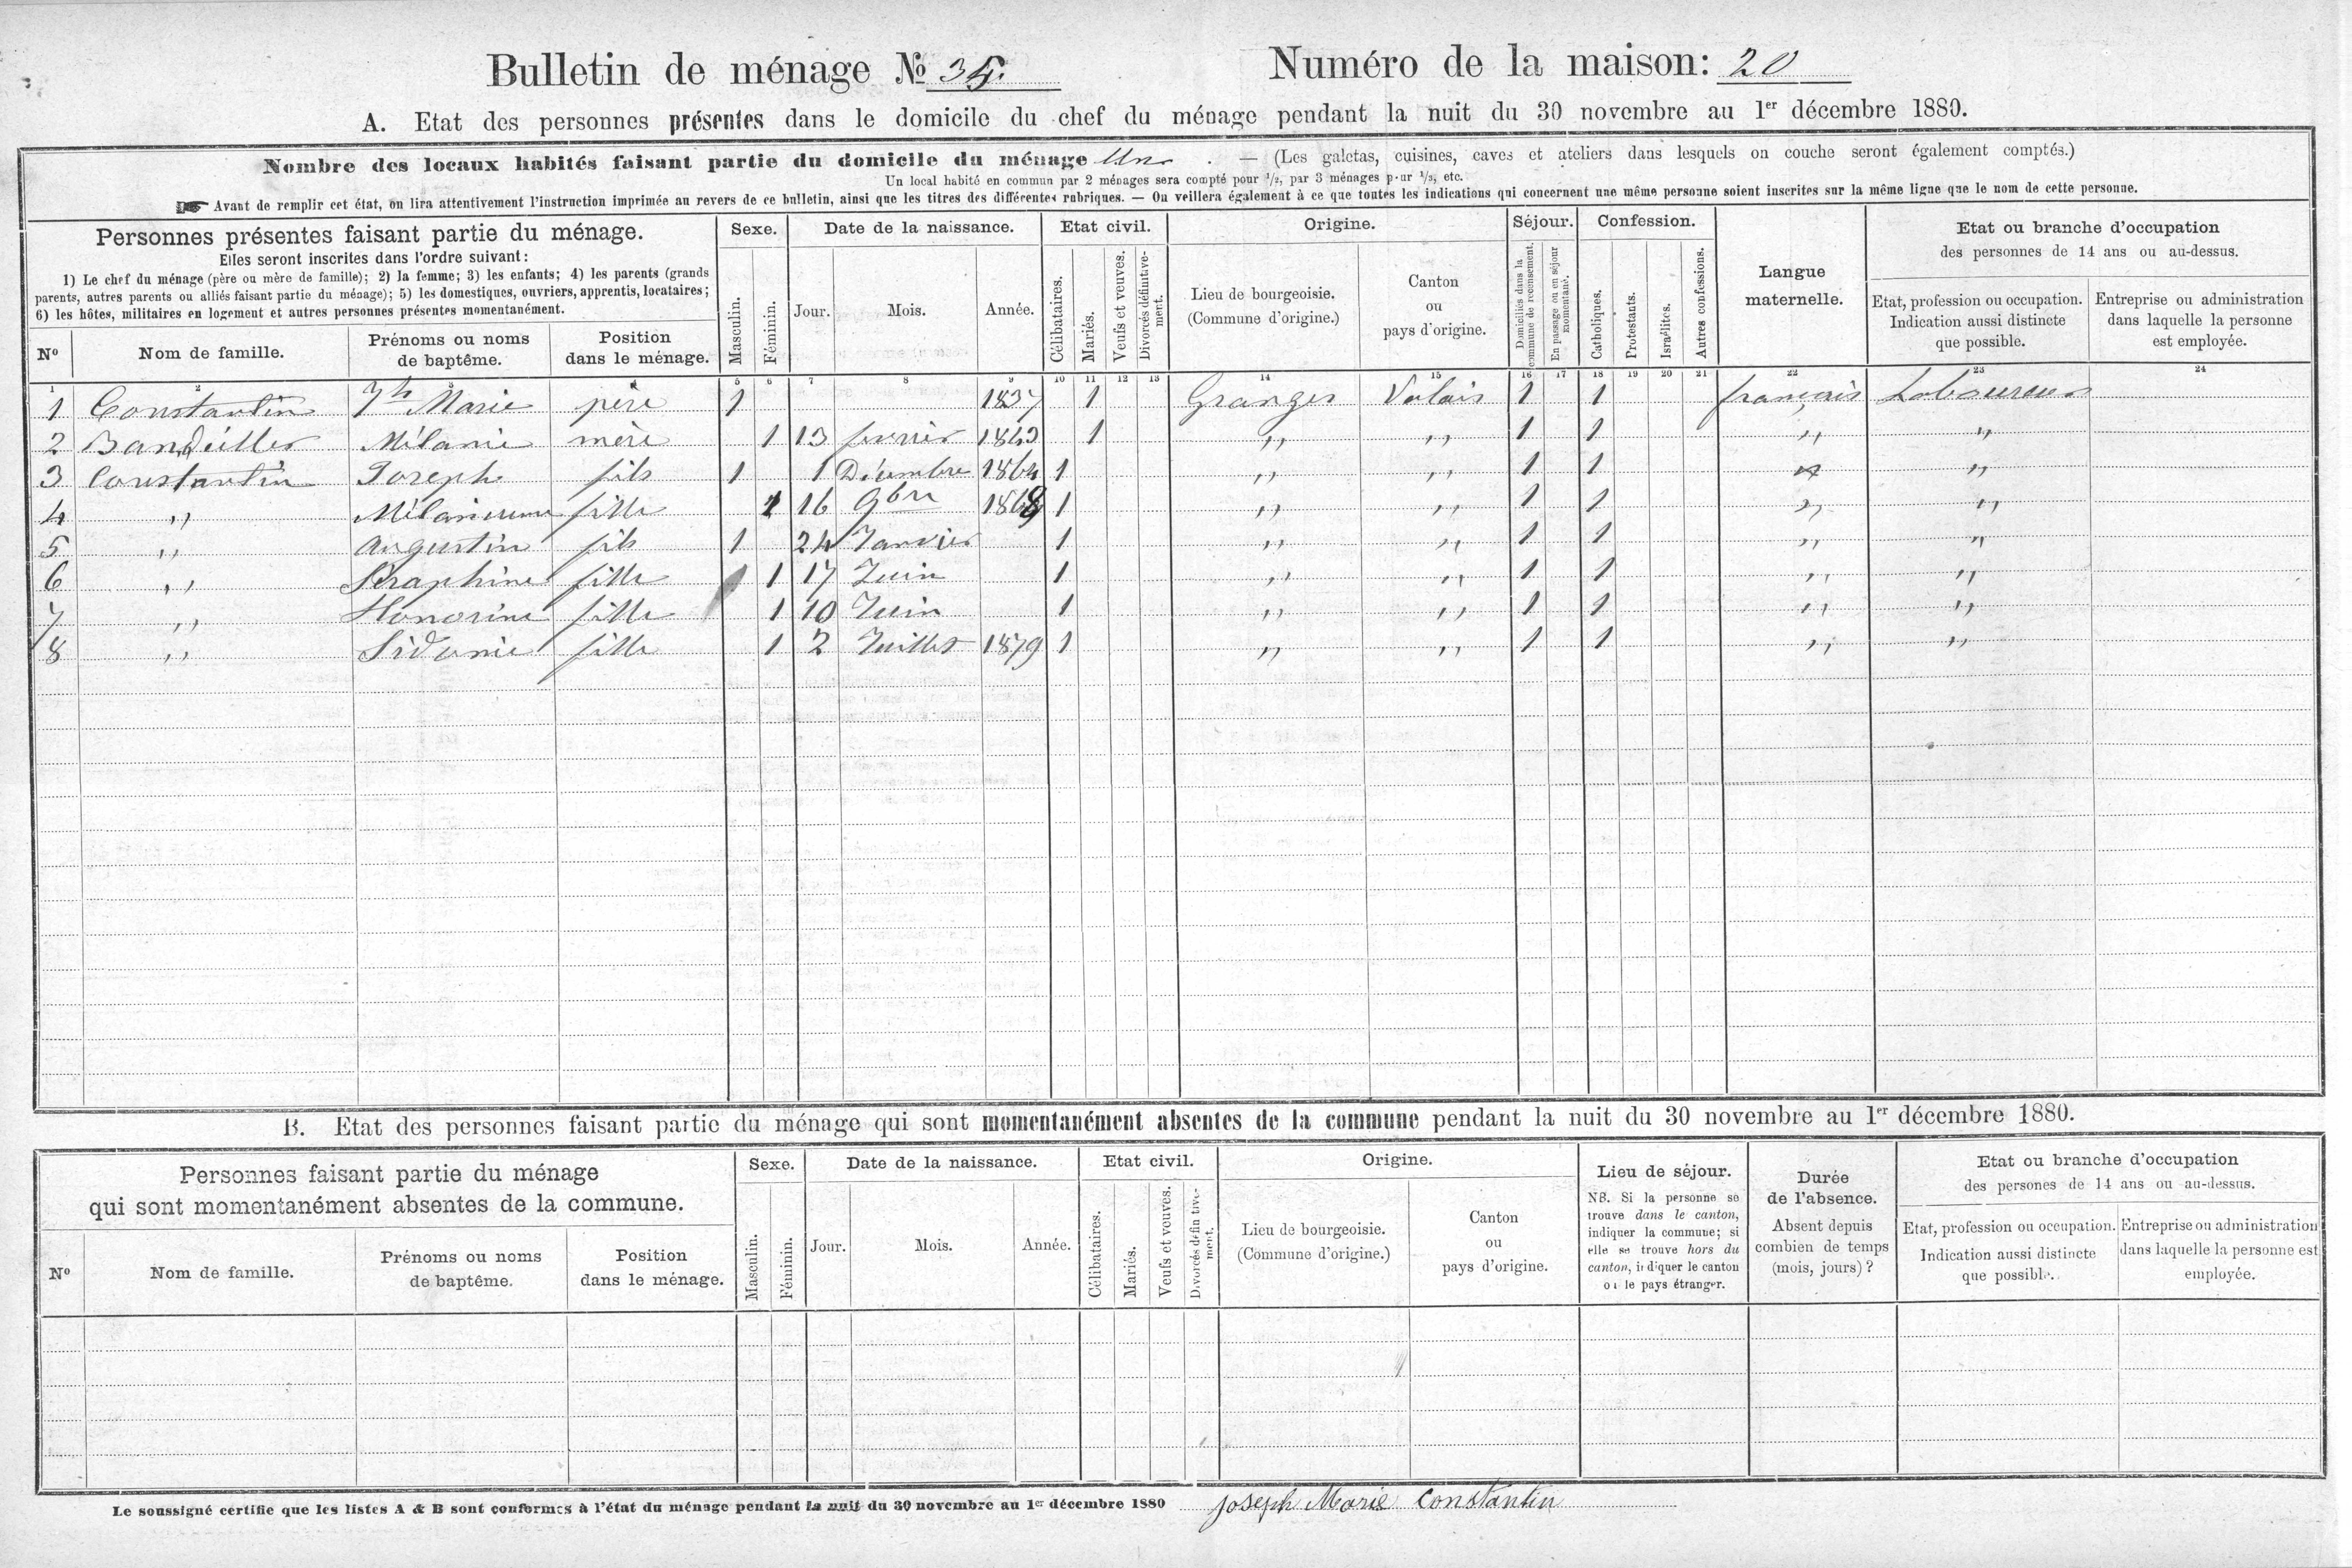 Bulletin de ménage № 35. Numéro de la maison: 20
A. Etat des personnes présentes dans le domicile du chef du ménage pendant la nuit du 30 novembre au 1er décembre 1880.
Nombre des locaux habités faisant partie du domicile du ménage Un . — (Les galetas, cuisines, caves et ateliers dans lesquels on couche seront également comptés.)
Un local habité en commun par 2 ménages sera compté pour 1/2, par 3 ménages pour 1/3, etc.
☛ Avant de remplir cet état, on lira attentivement l'instruction imprimée au revers de ce bulletin, ainsi que les titres des différentes rubriques. — On veillera également à ce que toutes les indications qui concernent une même personne soient inscrites sur la même ligne que le nom de cette personne.
Personnes présentes faisant partie du ménage.
Elles seront inscrites dans l'ordre suivant:
1) Le chef du ménage (père ou mère de famille); 2) la femme; 3) les enfants; 4) les parents (grands
parents, autres parents ou alliés faisant partie du ménage); 5) les domestiques, ouvriers, apprentis, locataires;
6) les hôtes, militaires en logement et autres personnes présentes momentanément.
Nº
Nom de famille.
Prénoms ou noms
de baptême.
Position
dans le ménage.
Sexe.
Masculin.
Féminin.
Date de la naissance.
Jour.
Mois.
Année.
Etat civil.
Célibataires.
Mariés.
Veufs et veuves.
Divorcés définitive-
ment.
Origine.
Lieu de bourgeoisie.
(Commune d'origine.)
Canton
ou
pays d'origine.
Séjour.
Domiciliés dans la
commune de recensement.
En passage ou en séjour
momentané.
Confession.
Catholiques.
Protestants.
Israélites.
Autres confessions.
Langue
maternelle.
Etat ou branche d'occupation
des personnes de 14 ans ou au-dessus.
Etat, profession ou occupation.
Indication aussi distincte
que possible.
Entreprise ou administration
dans laquelle la personne
est employée.
1 2 3 4 5 6 7 8 9 10 11 12 13 14 15 16 17 18 19 20 21 22 23 24
1 Constantin Jh Marie père 1 1837 1 Granges Valais 1 1 français Laboureur
2 Mélanie mère 1 13 février 1843 1 " " 1 1 " "
3 Constantin Joseph fils 1 1 Décembre 1864 1 " " 1 1 " "
4 " fille 1 16 9bre 1868 1 " " 1 1 " "
5 " Augustin fils 1 24 Janvier 1 " " 1 1 " "
6 " Séraphine fille 1 17 Juin 1 " " 1 1 " "
7 " Honorine fille 1 10 Juin 1 " " 1 1 " "
8 " Sidonie fille 1 2 Juillet 1879 1 " " 1 1 " "
B. Etat des personnes faisant partie du ménage qui sont momentanément absentes de la commune pendant la nuit du 30 novembre au 1er décembre 1880.
Personnes faisant partie du ménage
qui sont momentanément absentes de la commune.
Nº
Nom de famille.
Prénoms ou noms
de baptême.
Position
dans le ménage.
Sexe.
Masculin.
Féminin.
Date de la naissance.
Jour.
Mois.
Année.
Etat civil.
Célibataires.
Mariés.
Veufs et veuves.
Divorcés définitive-
ment.
Origine.
Lieu de bourgeoisie.
(Commune d'origine.)
Canton
ou
pays d'origine.
Lieu de séjour.
NB. Si la personne se
trouve dans le canton,
indiquer la commune; si
elle se trouve hors du
canton, indiquer le canton
ou le pays étranger.
Durée
de l'absence.
Absent depuis
combien de temps
(mois, jours)?
Etat ou branche d'occupation
des persones de 14 ans ou au-dessus.
Etat, profession ou occupation.
Indication aussi distincte
que possible.
Entreprise ou administration
dans laquelle la personne est
employée.
Le soussigné certifie que les listes A & B sont conformes à l'état du ménage pendant la nuit du 30 novembre au 1er décembre 1880 Joseph Marie Constantin